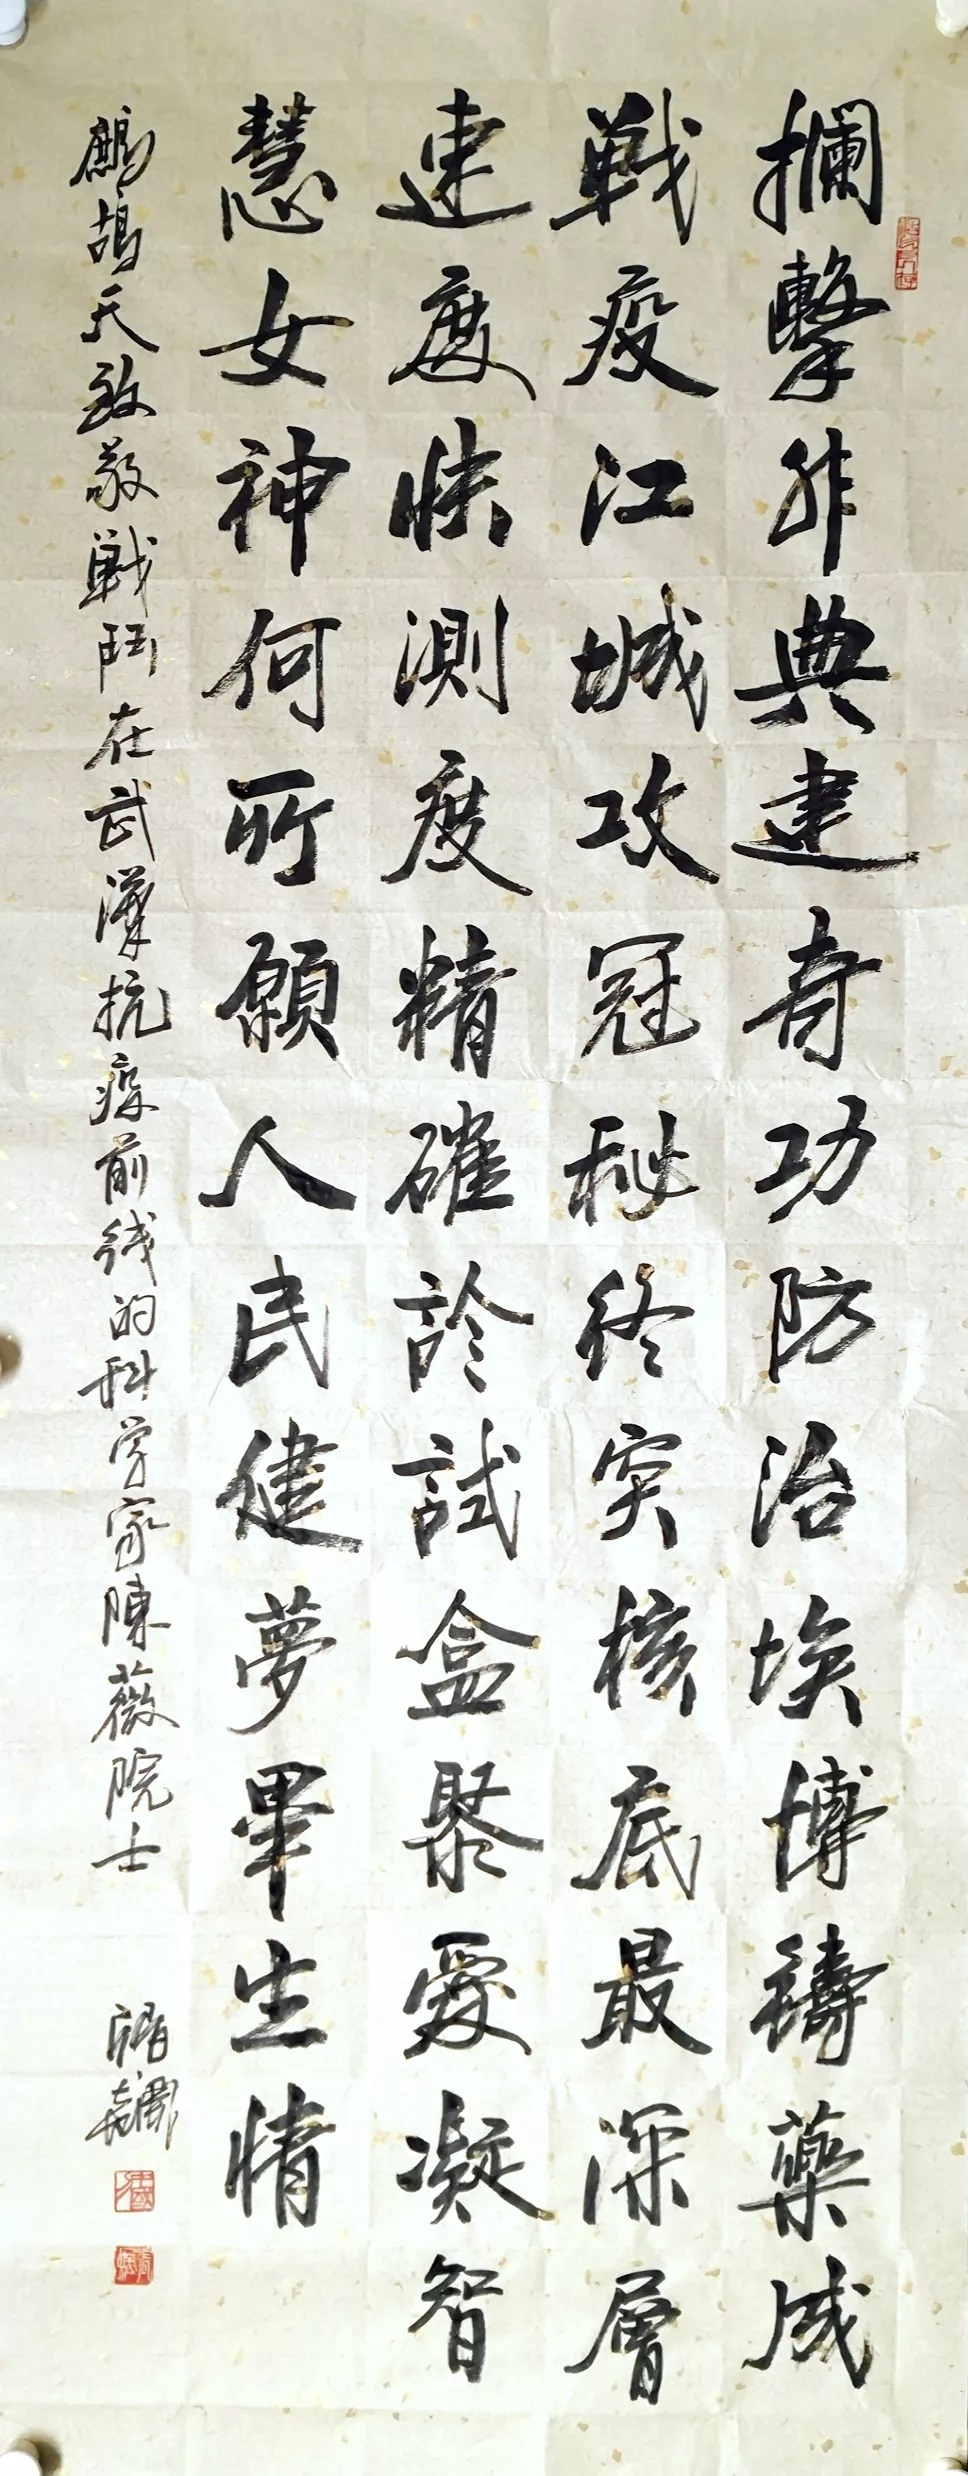 攔擊非典建奇功防治埃博鑄藥成
戰疫江城攻冠秘終突核底最深層
速度快測度精確診試盒聚愛凝智
慧女神何所願人民健夢畢生情
鷓鴣天致敬戰鬥在武漢抗疫前线的科学家陳薇院士